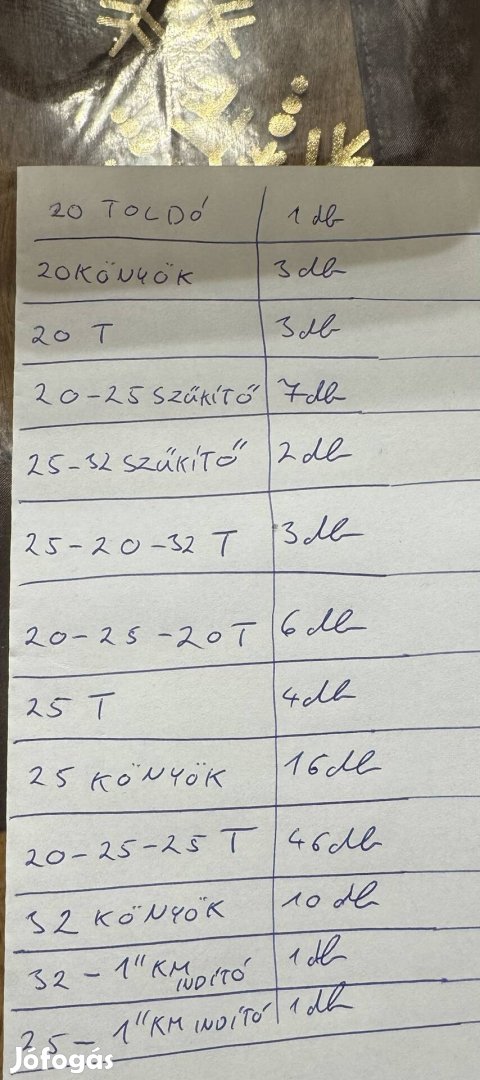 20 TOLDÓ 1 db
20 KÖNYÖK 3 db
20 T 3 db
20-25 SZŰKÍTŐ 7 db
25-32 SZŰKÍTŐ 2 db
25-20-32 T 3 db
20-25-20 T 6 db
25 T 4 db
25 KÖNYÖK 16 db
20-25-25 T 46 db
32 KÖNYÖK 10 db
32 - 1" KM INDÍTÓ 1 db
25 - 1" KM INDÍTÓ 1 db
Jófogás